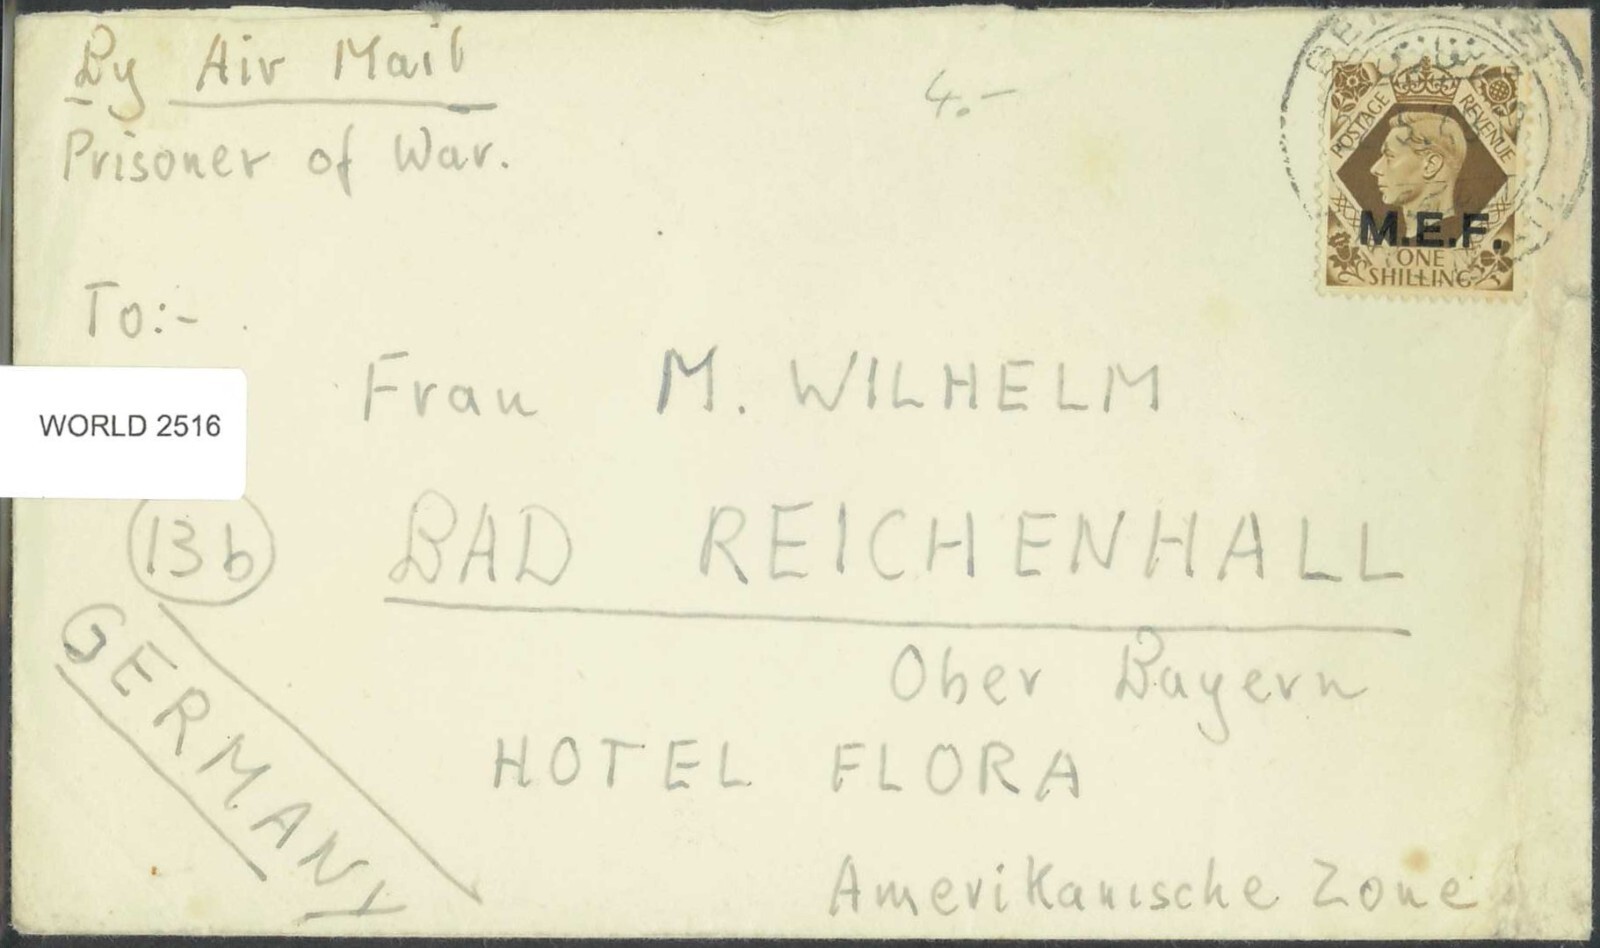 By Air Mail
Prisoner of War.
4.-
POSTAGE REVENUE
M.E.F.
ONE
SHILLING
To:-
Frau M. WILHELM
WORLD 2516
13b
BAD REICHENHALL
Ober Bayern
GERMANY
HOTEL FLORA
Amerikanische Zone